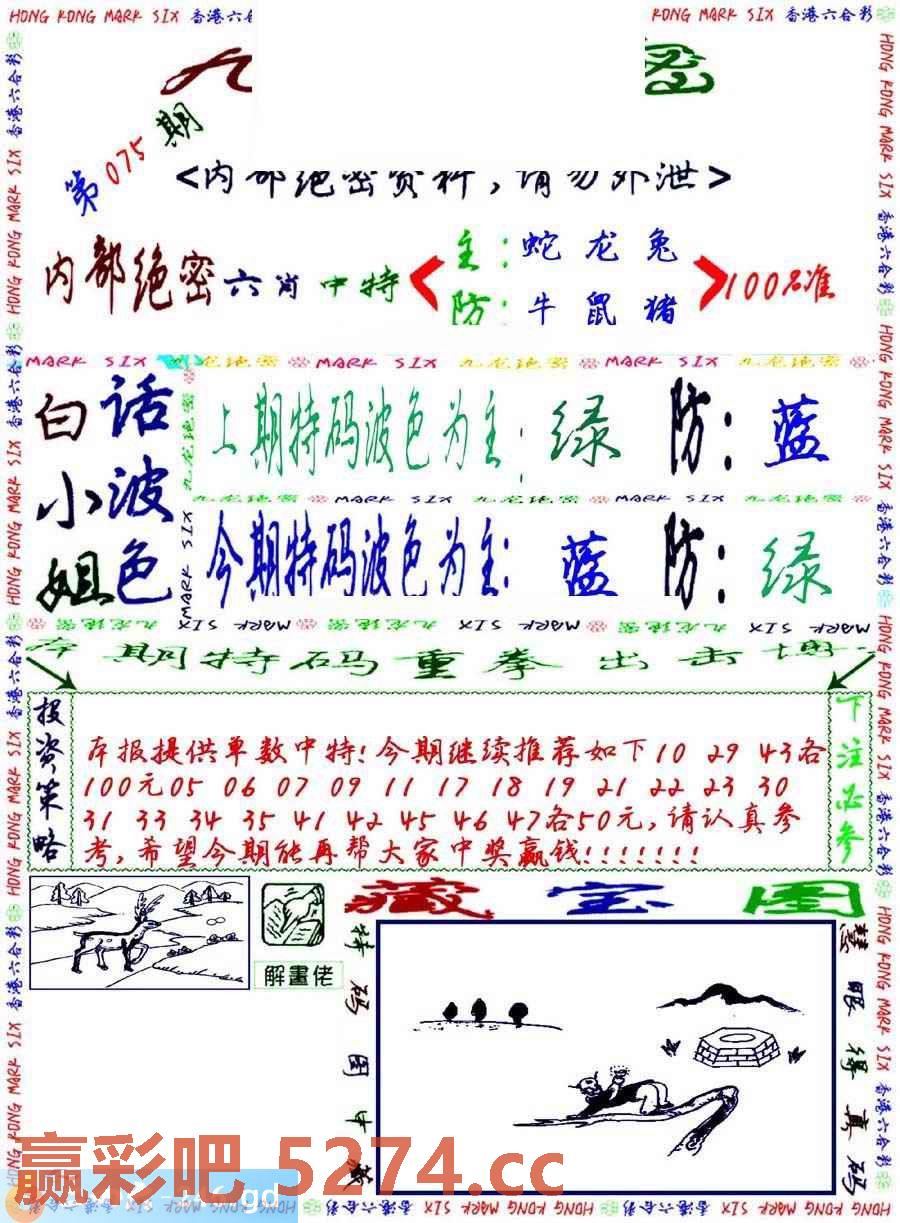 HONG KONG MARK SIX 香港六合彩
HONG KONG MARK SIX 香港六合彩
第075期
<内部绝密资料，请勿外泄>
内部绝密六肖中特
主：蛇龙兔
防：牛鼠猪
100%准
MARK SIX 九龙绝密 MARK SIX 九龙绝密 MARK SIX 九龙绝密
白话
小波
姐色
上期特码波色为主：绿 防：蓝
九龙绝密 MARK SIX 九龙绝密 MARK SIX
今期特码波色为主：蓝 防：绿
MARK SIX 九龙绝密 MARK SIX 九龙绝密 MARK SIX
本期特码重拳出击
投资策略
本报提供单数中特!今期继续推荐如下10 29 43各
100元05 06 07 09 11 17 18 19 21 22 23 30
31 33 34 35 41 42 45 46 47各50元,请认真参
考,希望今期能再帮大家中奖赢钱!!!!!!!
下注必参
解畫佬
藏宝图
特码图中藏
慧眼得真码
赢彩吧 5274.cc
HONG KONG MARK SIX 香港六合彩